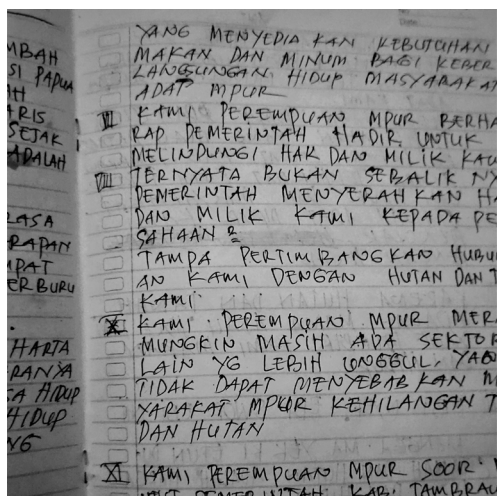 MBAH
SI PAPUA
AH
ARIS
SEJAK
ADALAH
RASA
RAPAN
MPAT
ERBURU
HARTA
RANYA
SA HIDUP
HIDUP
NG
YANG MENYEDIA KAN KEBUTUHAN
MAKAN DAN MINUM BAGI KEBER
LANGSUNGAN HIDUP MASYARAKAT
ADAT MPUR
VII KAMI PEREMPUAN MPUR BERHA
RAP PEMERINTAH HADIR UNTUK
MELINDUNGI HAK DAN MILIK KAM
VIII TERNYATA BUKAN SEBALIK NY
PEMERINTAH MENYERAHKAN HA
DAN MILIK KAMI KEPADA PE
SAHAAN2
TAMPA PERTIMBANGKAN HUBU
AN KAMI DENGAN HUTAN DAN T
KAMI.
X KAMI PEREMPUAN MPUR MERA
MUNGKIN MASIH ADA SEKTOR
LAIN YG LEBIH UNGGUL, YAN
TIDAK DAPAT MENYEBABKAN M
YARAKAT MPUR KEHILANGAN T
DAN HUTAN
XI KAMI PEREMPUAN MPUR SOOR
PEMERINTAH KAB. TAMBRAU